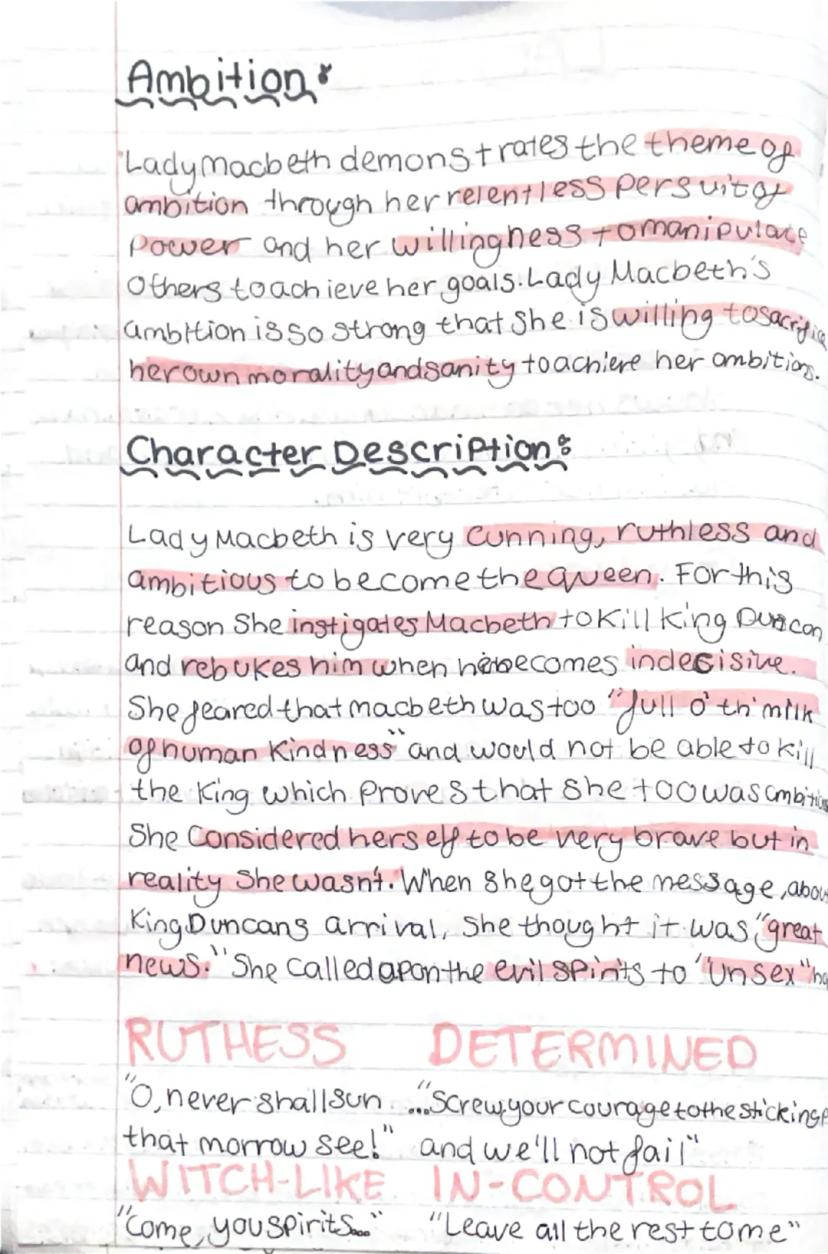 Ambition:
Lady Macbeth demonstrates the theme of
ambition through her relentless persuit of
power and her willingness to manipulate
others to achieve her goals. Lady Macbeth's
ambition is so strong that she is willing to sacrifice
her own morality and sanity to achieve her ambitions.
Character Description:
Lady Macbeth is very cunning, ruthless and
ambitious to become the queen. For this
reason she instigates Macbeth to kill King Duncan
and rebukes him when he becomes indecisive.
She feared that macbeth was too "full o' th' milk
of human kindness" and would not be able to kill
the King which proves that she too was ambitio
She considered herself to be very brave but in
reality she wasn't. When she got the message, abou
King Duncans arrival, she thought it was "great
news." She called apon the evil spirits to "unsex" h
RUTHESS DETERMINED
"O, never shall sun ..."Screw your courage to the sticking p
that morrow see!" and we'll not fail"
WITCH-LIKE IN-CONTROL
"Come, you spirits..." "Leave all the rest to me"